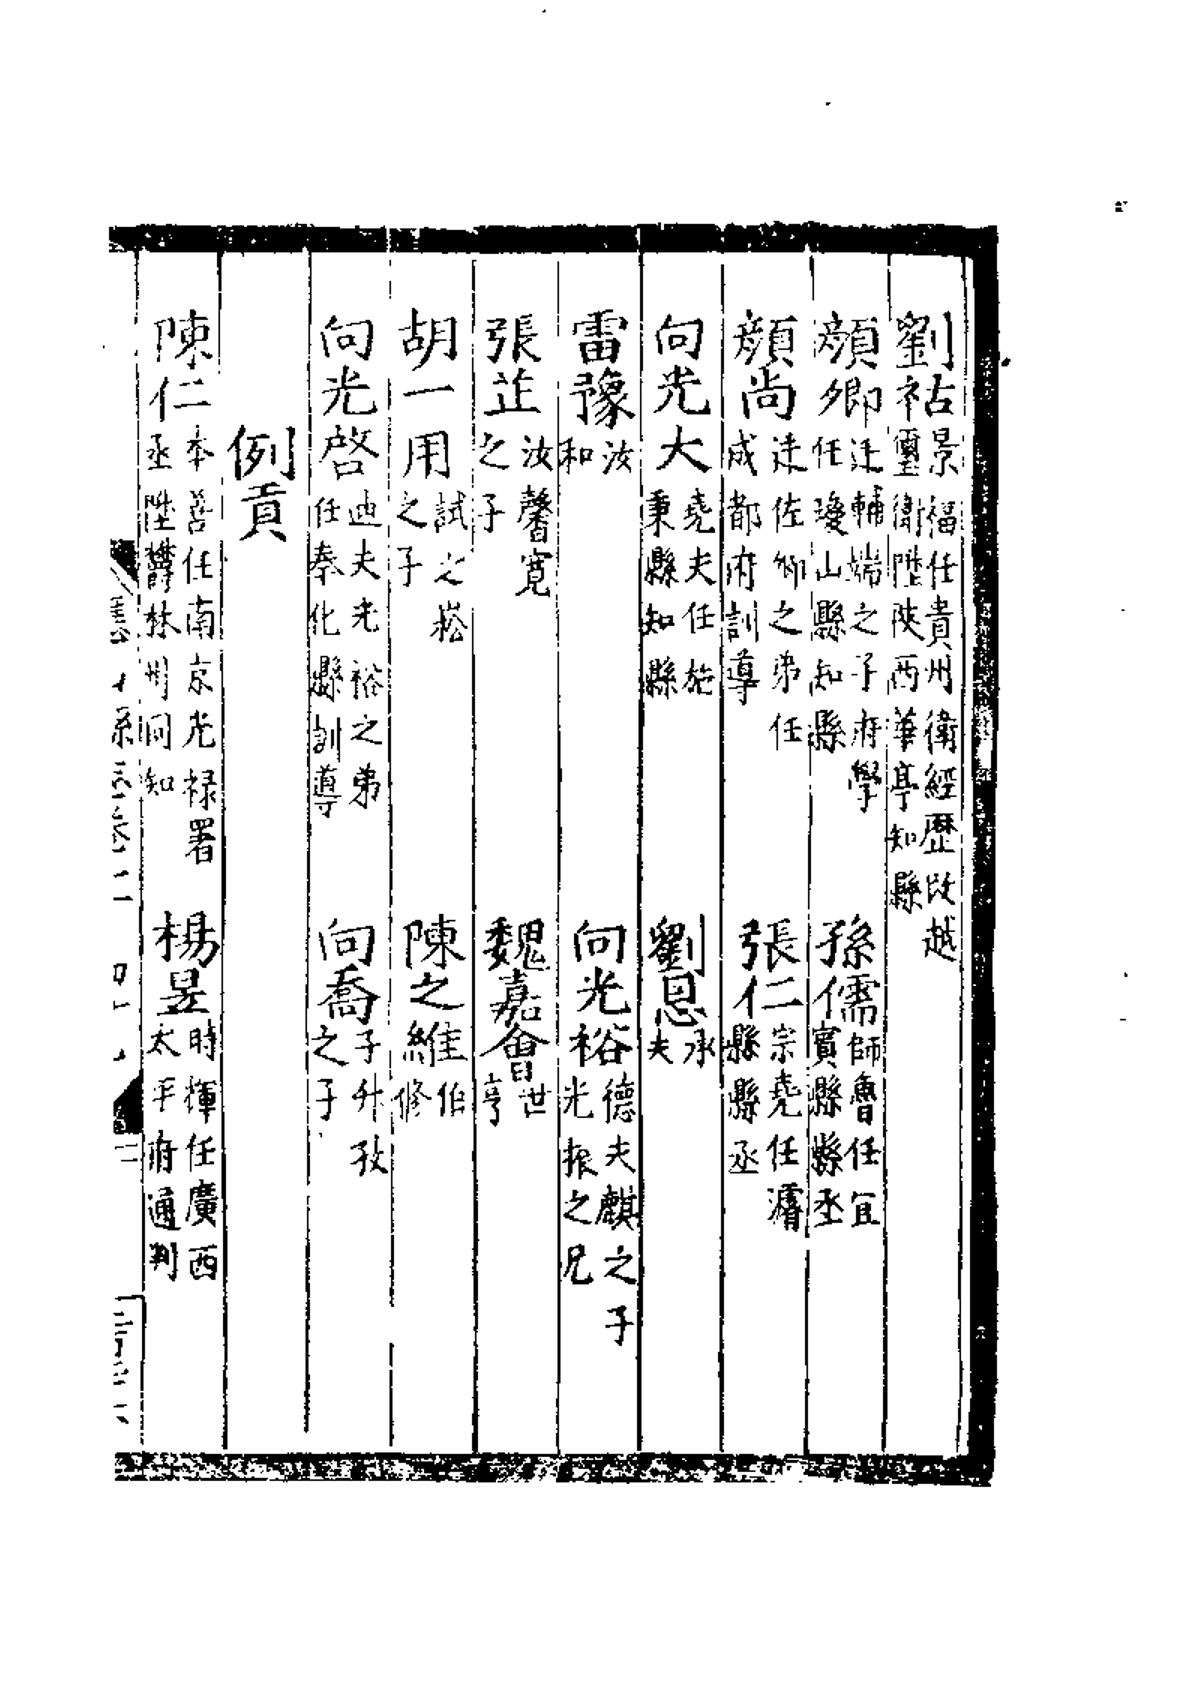 劉祜景福任貴州衛經歷改越
嶲衛陞陝西華亭知縣
顏卿廷輔端之子府學
任瓊山縣知縣
孫儒師魯任宜
賓縣縣丞
顏尚廷佐卿之弟任
成都府訓導
張仁宗堯任
縣縣丞
向光大堯夫任施
秉縣知縣
劉恩承
夫
雷豫汝
和
向光裕德夫麒之子
光振之兄
張芷汝馨寬
之子
魏嘉會世
亨
胡一用試之崧
之子
陳之維伯
修
向光啓迪夫光裕之弟
任奉化縣訓導
向喬子升孜
之子
例貢
陳仁本善任南京光祿署
丞陞鬱林州同知
楊昱時輝任廣西
太平府通判
縣志卷二